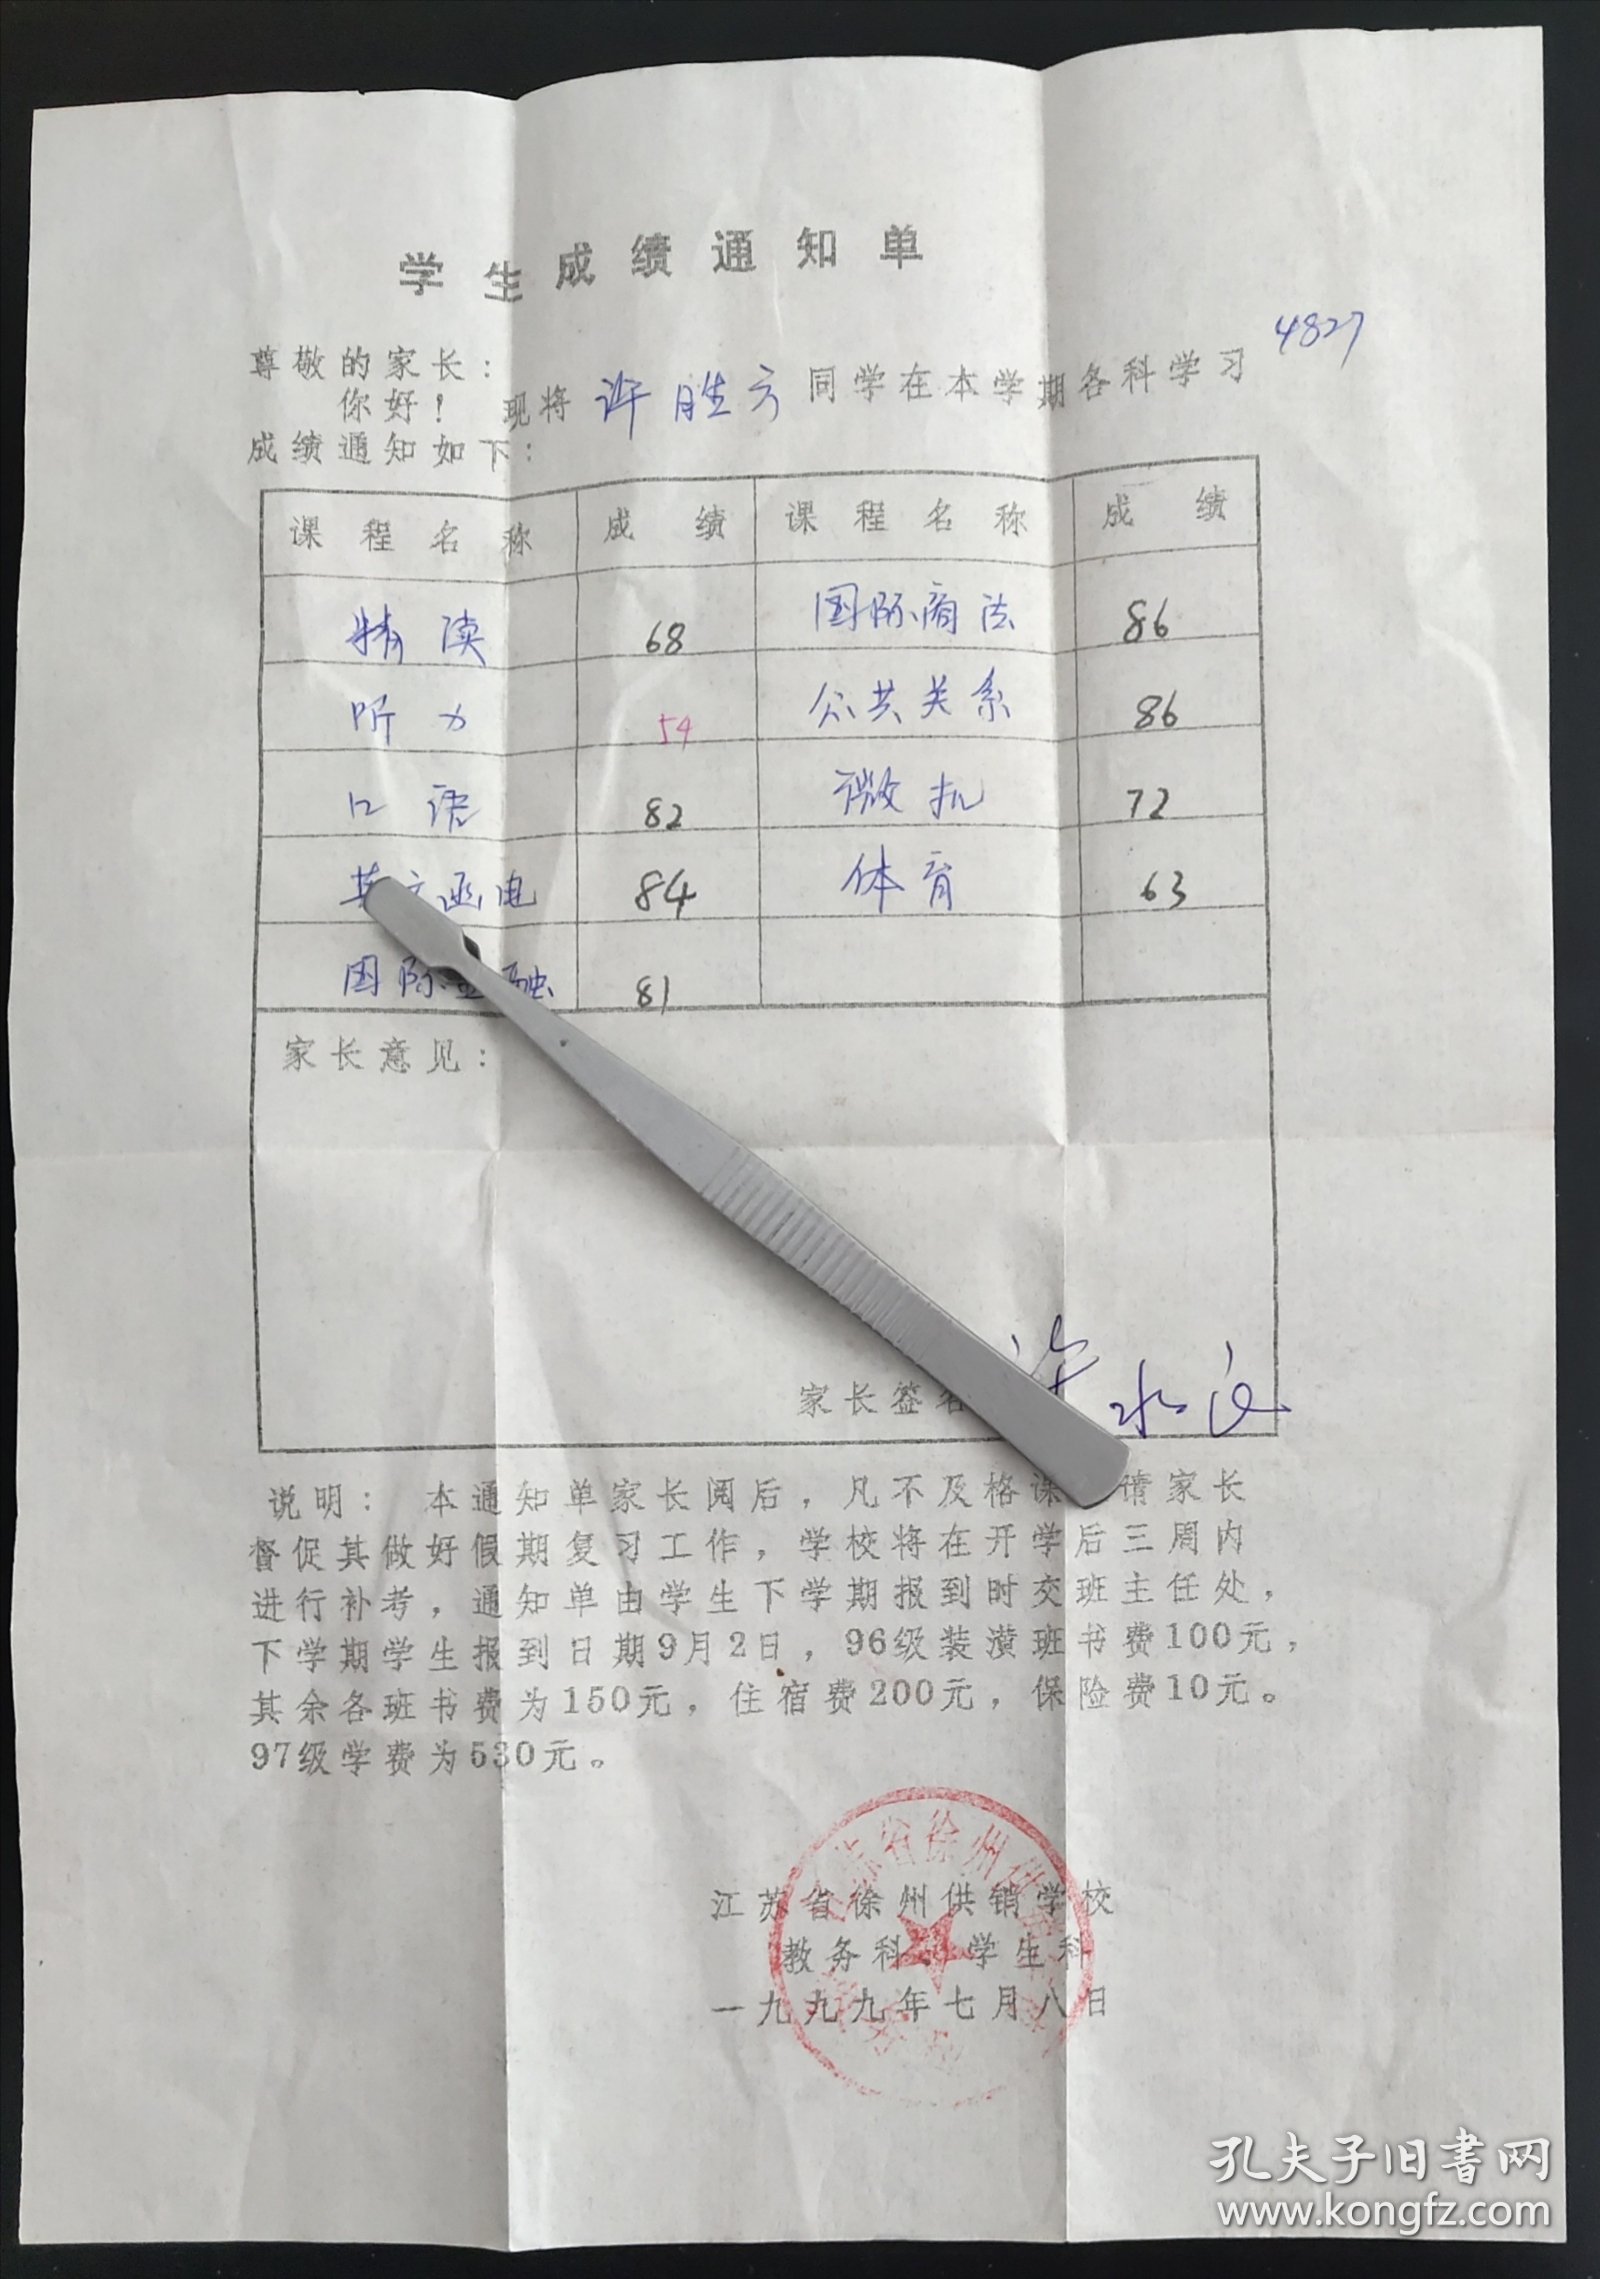 学生成绩通知单
4827
尊敬的家长：
你好！ 现将 许胜方 同学在本学期各科学习
成绩通知如下：
课程名称 成绩 课程名称 成绩
精读 68 国际商法 86
听力 54 公共关系 86
口语 82 微机 72
英文函电 84 体育 63
国际金融 81
家长意见：
家长签名 许水
说明： 本通知单家长阅后，凡不及格课 请家长
督促其做好假期复习工作，学校将在开学后三周内
进行补考，通知单由学生下学期报到时交班主任处，
下学期学生报到日期9月2日，96级装潢班书费100元，
其余各班书费为150元，住宿费200元，保险费10元。
97级学费为530元。
江苏省徐州供销学校
教务科 学生科
一九九九年七月八日
孔夫子旧书网
www.kongfz.com